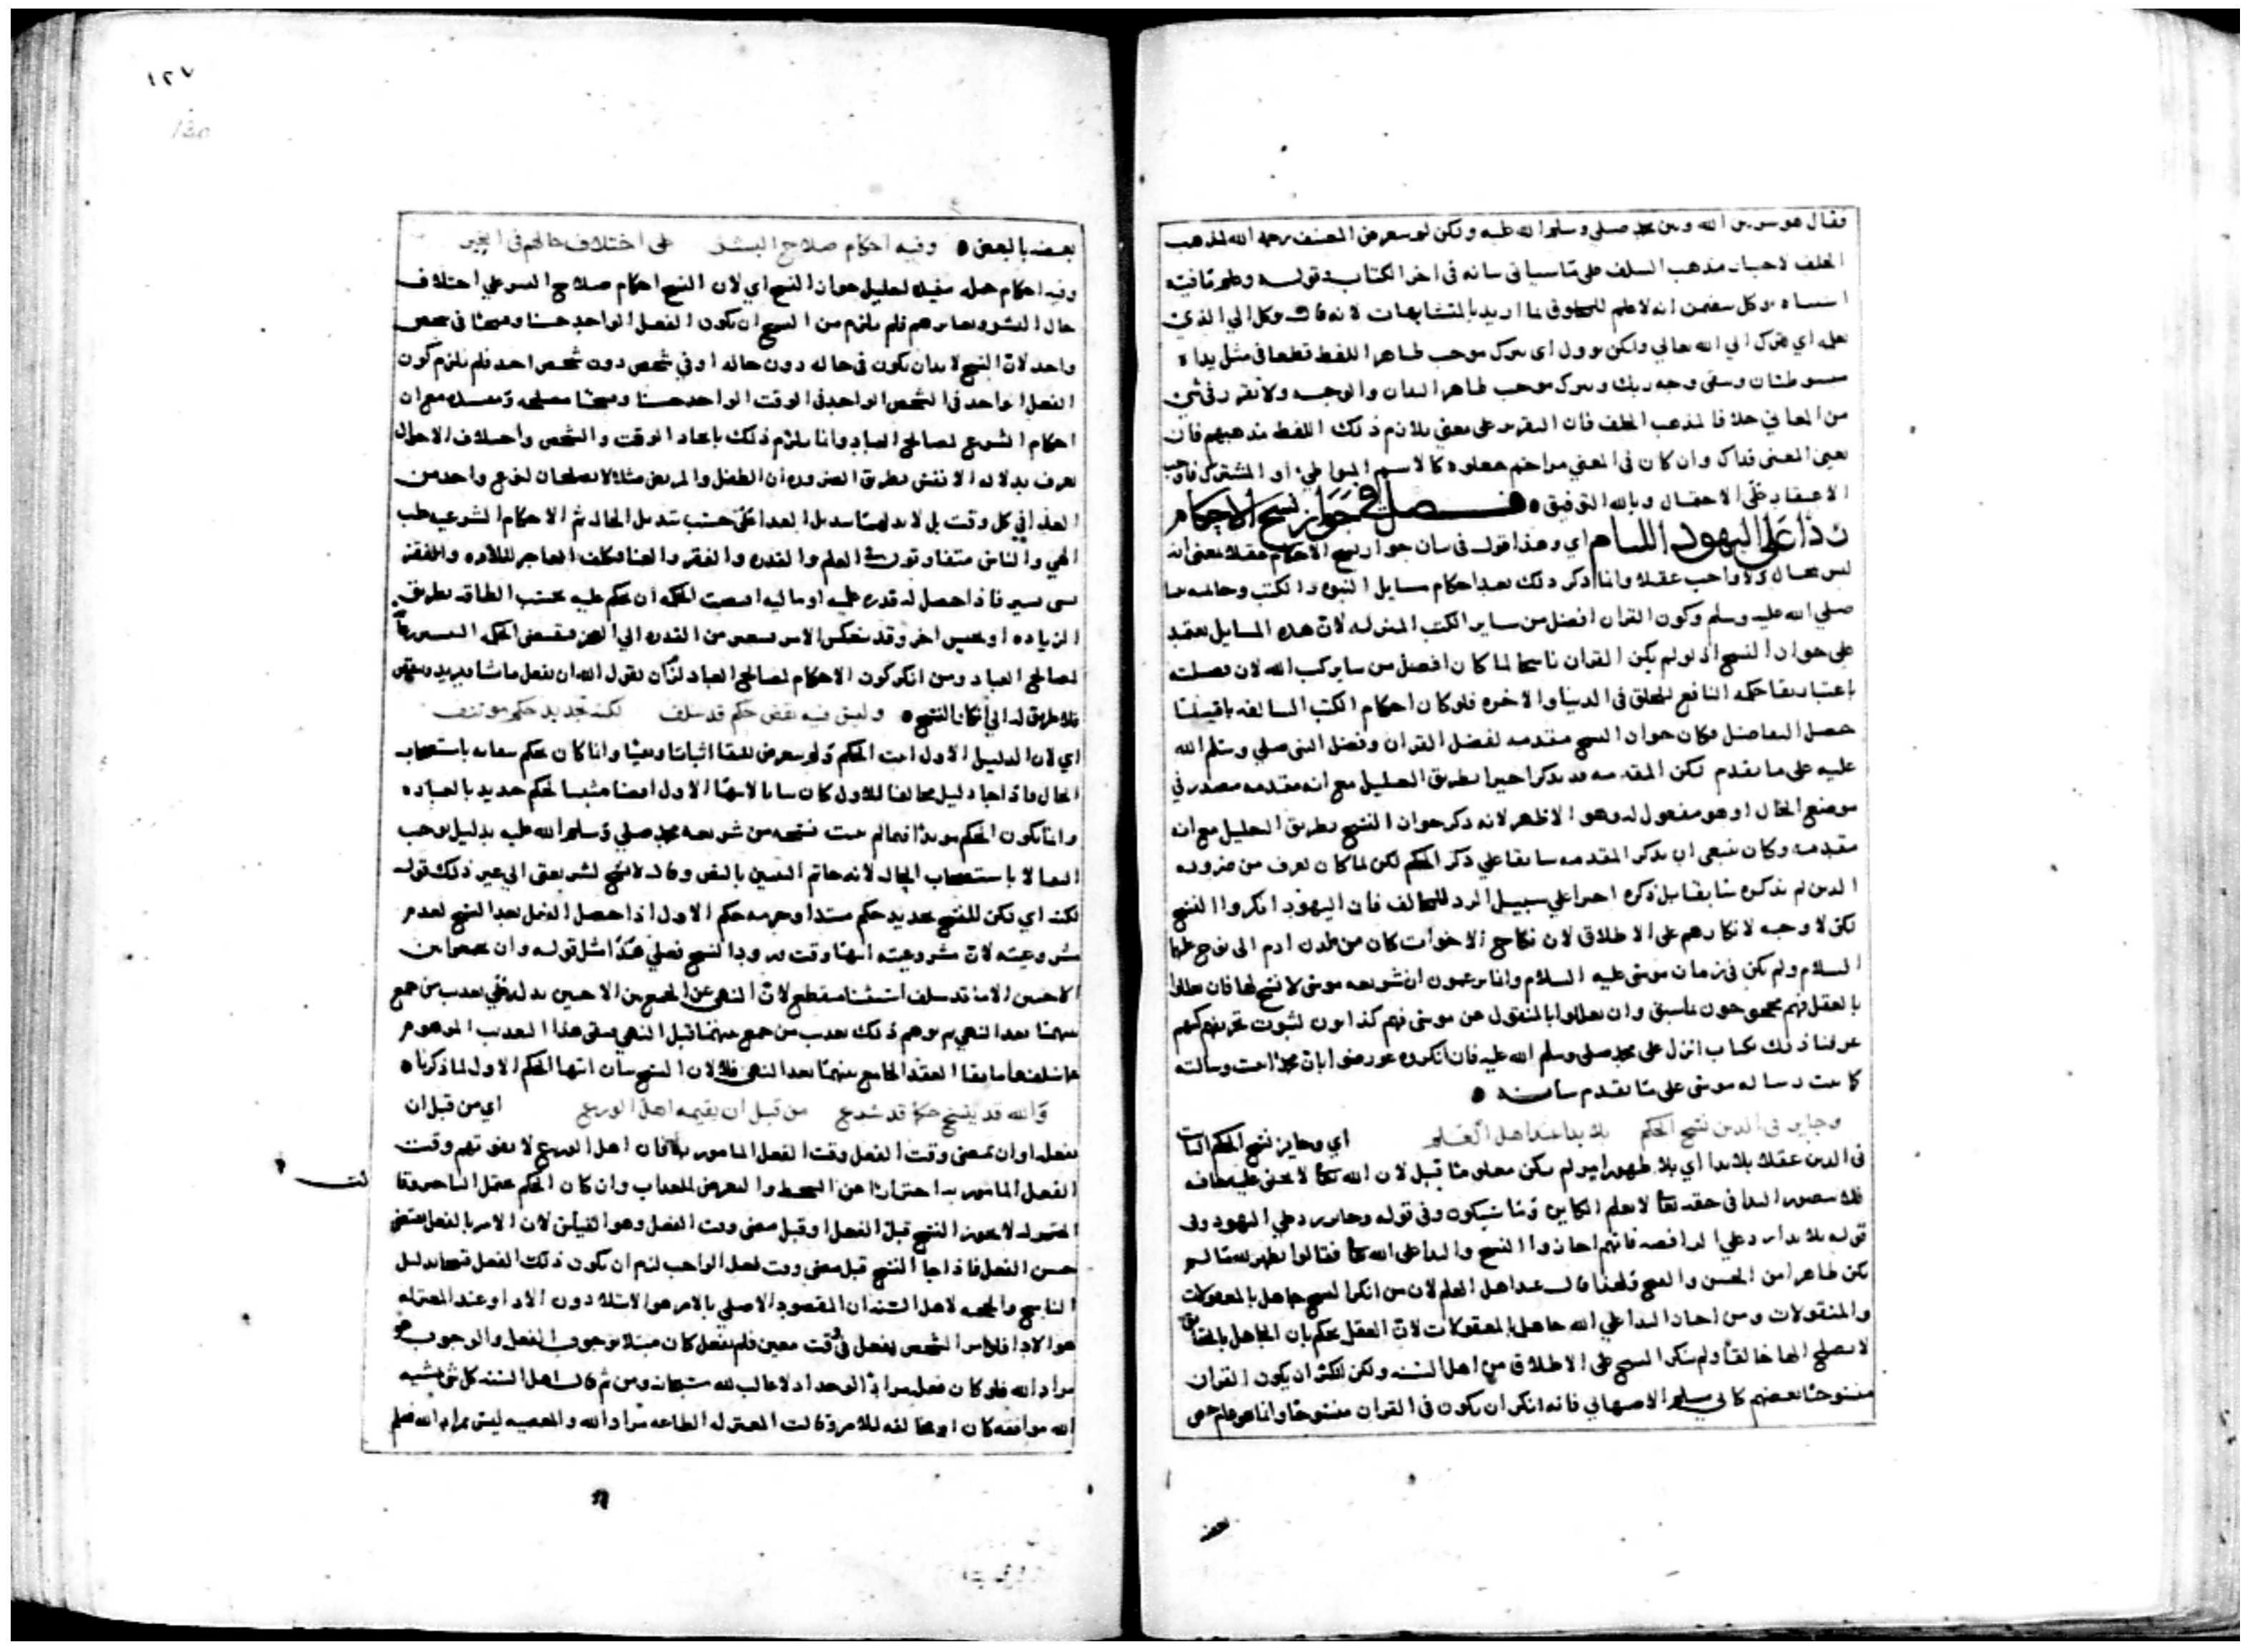 فقال هو سر بين الله وبين محمد صلى وسلم الله عليه ولكن لم يتعرض المصنف رحمه الله لمذهب
الخلف لاختيار مذهب السلف على ما سياتى بيانه فى اخر الكتاب قوله وعلم ما فيه
اشتباه يوكل متضمن انه لا علم للمخلوق بما اريد بالمتشابهات لانه قال يوكل الي الذي
يعلم اي يترك الي الله تعالي ولكن يوول اى يترك موجب ظاهر اللفظ قطعا فى مثل يداه
مبسوطتان ويبقى وجه ربك ويترك موجب ظاهر اليدان والوجه ولا يقرر فى شي
من المعاني خلافا لمذهب الخلف فان التقرير على معني يلازم ذلك اللفظ مذهبهم فان
تعين المعنى فذاك وان كان فى المعني مزاحم كالاسم المتواطئ او المشترك
الاعتقاد على الاحتمال وبالله التوفيق ه فصل فى جواز نسخ الاحكام
ردا على اليهود اللئام اي وهذا قول فى بيان جواز نسخ الاحكام عقلا بمعنى انه
ليس بمحال ولا واجب عقلا وانما ذكر ذلك بعد احكام مسايل النبوه والكتب
صلي الله عليه وسلم وكون القران افضل من ساير الكتب المنزله لان هذه المسايل تعتمد
على جواز النسخ اذ لو لم يكن القران ناسخا لما كان افضل من ساير كتب الله لان فضيلته
باعتبار بقا حكمه النافع للخلق فى الدنيا والاخره فلو كان احكام الكتب السالفه باقيه لما
حصل التفاضل فكان جواز النسخ مقدمه لفضل القران وفضل النبى صلي وسلم الله
عليه على ما تقدم لكن المقدمه قد يذكر اخيرا بطريق التعليل مع انه مقدمه مصدر في
موضع الحال او هو مفعول له وهو الاظهر لانه ذكر جواز النسخ بطريق التعليل مع انه
مقدمه وكان ينبغي ان يذكر المقدمه سابقا علي ذكر الحكم لكن لما كان تعرف من ضروره
الدين لم يذكره سابقا بل ذكره اخيرا علي سبيل الرد للمخالف فان اليهود انكروا النسخ
لكن لا وجه لانكارهم على الاطلاق لان نكاح الاخوات كان من لدن ادم الى نوح عليهما
السلام ولم يكن فى زمان موسى عليه السلام وانما يزعمون ان شريعه موسى لا نسخ لها فان
بالعقل فهم محجوجون بما سبق وان تعللوا بالمنقول عن موسى فهم كذابون لثبوت تحريفهم
عرفنا ذلك بكتاب انزل على محمد صلى وسلم الله عليه فان انكروه عورضوا بان محمدا ثبت رسالته
كما ثبت رساله موسى على ما تقدم بيانه ه
وجايز فى الدين نسخ الحكم بلا بدا عند اهل العلم اي وجايز نسخ الحكم الثابت
فى الدين عقلا بلا بدا اي بلا ظهور امر لم يكن معلوما قبل لان الله تعالى لا يخفى عليه خافيه
فلا يتصور البدا فى حقه تعالى لا يعلم الكاين وما سيكون وفى قوله وجايز رد علي اليهود وفى
قوله بلا بدا رد علي الرافضه فانهم اجازوا النسخ والبدا على الله تعالى فقالوا يظهر لله ما لم
يكن ظاهرا من الحسن والقبح ولهذا قال عند اهل العلم لان من انكر النسخ جاهل بالمعقولات
والمنقولات ومن اجاز البدا علي الله جاهل بالمعقولات لان العقل يحكم بان الجاهل بالحقايق
لا يصلح الها خالقا ولم ينكر النسخ على الاطلاق من اهل السنه ولكن انكر ان يكون القران
منسوخا بعضهم كابي مسلم الاصبهاني فانه انكر ان يكون فى القران منسوخا وانما هو عام خص
بعضه
١٢٧
بعضه بالبعض ه وفيه احكام صلاح البشر على اختلاف حالهم فى الغير
وفيه احكام جمله مفيده لتعليل جواز النسخ اي لان النسخ احكام صلاح البشر علي اختلاف
حال البشر فلم يلزم من النسخ ان يكون الفعل الواحد حسنا وقبيحا فى شخص
واحد لان النسخ لا بد ان يكون فى حاله دون حاله او في شخص دون شخص احد فلم يلزم كون
الفعل الواحد فى الشخص الواحد فى الوقت الواحد حسنا وقبيحا مصلحه ومفسده مع ان
احكام الشرع لمصالح العباد وانما يلزم ذلك باتحاد الوقت والشخص واختلاف الاحوال
تعرف بدلاله الانفس بطريق الضروره ان الطفل والمريض مثلا لا يصلحان لنوع واحد من
الغذا في كل وقت بل لا بد لهما تبديل الغدا على حسب تبديل الحال ثم الاحكام الشرعيه طب
الهي والناس متفاوتون فى العلم والقدره والفقر والغنا فكلف العاجز للاداء والفقير
بشي يسير فاذا حصل له قدره عليه او ماليه اقتضت الحكمه ان يحكم عليه بحسب الطاقه بطريق
الزياده او بجنس اخر وقد ينعكس الامر فيصير من القدره الي العجز فيقتضي الحكمه التيسير
لمصالح العباد ومن انكر كون الاحكام لمصالح العباد لكان يقول الله ان يفعل ما شا ويريد
فلا طريق له الي انكار النسخ ه وليس فيه نقض حكم قد سلف لكنه تجديد حكم موتنف
اي لان الدليل الاول اثبت الحكم ولم يتعرض للبقا اثباتا ونفيا وانما كان يحكم ببقايه باستصحاب
الحال فاذا جا دليل مخالفا للاول كان بيانا لانتها الاول ايضا مثبتا لحكم جديد بالعباده
وانما يكون الحكم موبدا فيما لم يثبت نسخه من شريعه محمد صلي وسلم الله عليه بدليل يوجب
البقا لا باستصحاب الحال لانه خاتم النبيين بالنص وقال لا نسخ لشريعتى الي غير ذلك قوله
لكنه اي لكن للنسخ تجديد حكم مبتدا وحرمه حكم الاول اذا حصل الفعل بعد النسخ لعدم
مشروعيته لان مشروعيته انتها وقت ورود النسخ فعلي هذا مثل قوله وان تجمعوا بين
الاختين الا ما قد سلف استثنا منقطع لان النهي عن الجمع بين الاختين يدل على تعذيب من جمع
بينهما بعد النهي ثم يوهم ذلك تعذيب من جمع بينهما قبل النهي ينفى هذا التعذيب الموهوم
فيما سلف اما بقا العقد الجامع بينهما بعد النهي فلا لان النسخ بيان انتها الحكم الاول لما ذكرنا ه
والله قد ينسخ حكما قد شرع من قبل ان يقيمه اهل الورع اي من قبل ان
يفعل او ان يمضى وقت الفعل وقت الفعل المامور به فان اهل الورع لا يفوتهم وقت
الفعل المامور به احترازا عن السخط والتعرض للعذاب وان كان الحكم
المعتزله لا يجوز النسخ قبل الفعل او قبل مضى وقت الفعل وهو القياس لان الامر بالفعل يقتضى
حسن الفعل فاذا جا النسخ قبل مضى وقت فعل الواجب لزم ان يكون ذلك الفعل قبيحا بدليل
الناسخ والحجه لاهل السنه ان المقصود الاصلي بالامر هو الابتلا دون الادا وعند المعتزله
هو الادا فاذا امر الشخص بفعل فى وقت معين فلم يفعل كان مبتلا بوجوب الفعل والوجوب هو
مراد الله فلو كان فعل مرادا لوجد اذ لا غالب لله سبحانه ومن ثم قالت اهل السنه كل شى بمشيه
الله موافقه كان او مخالفه للامر وقالت المعتزله الطاعه مراد الله والمعصيه ليس بمراد الله فعلم